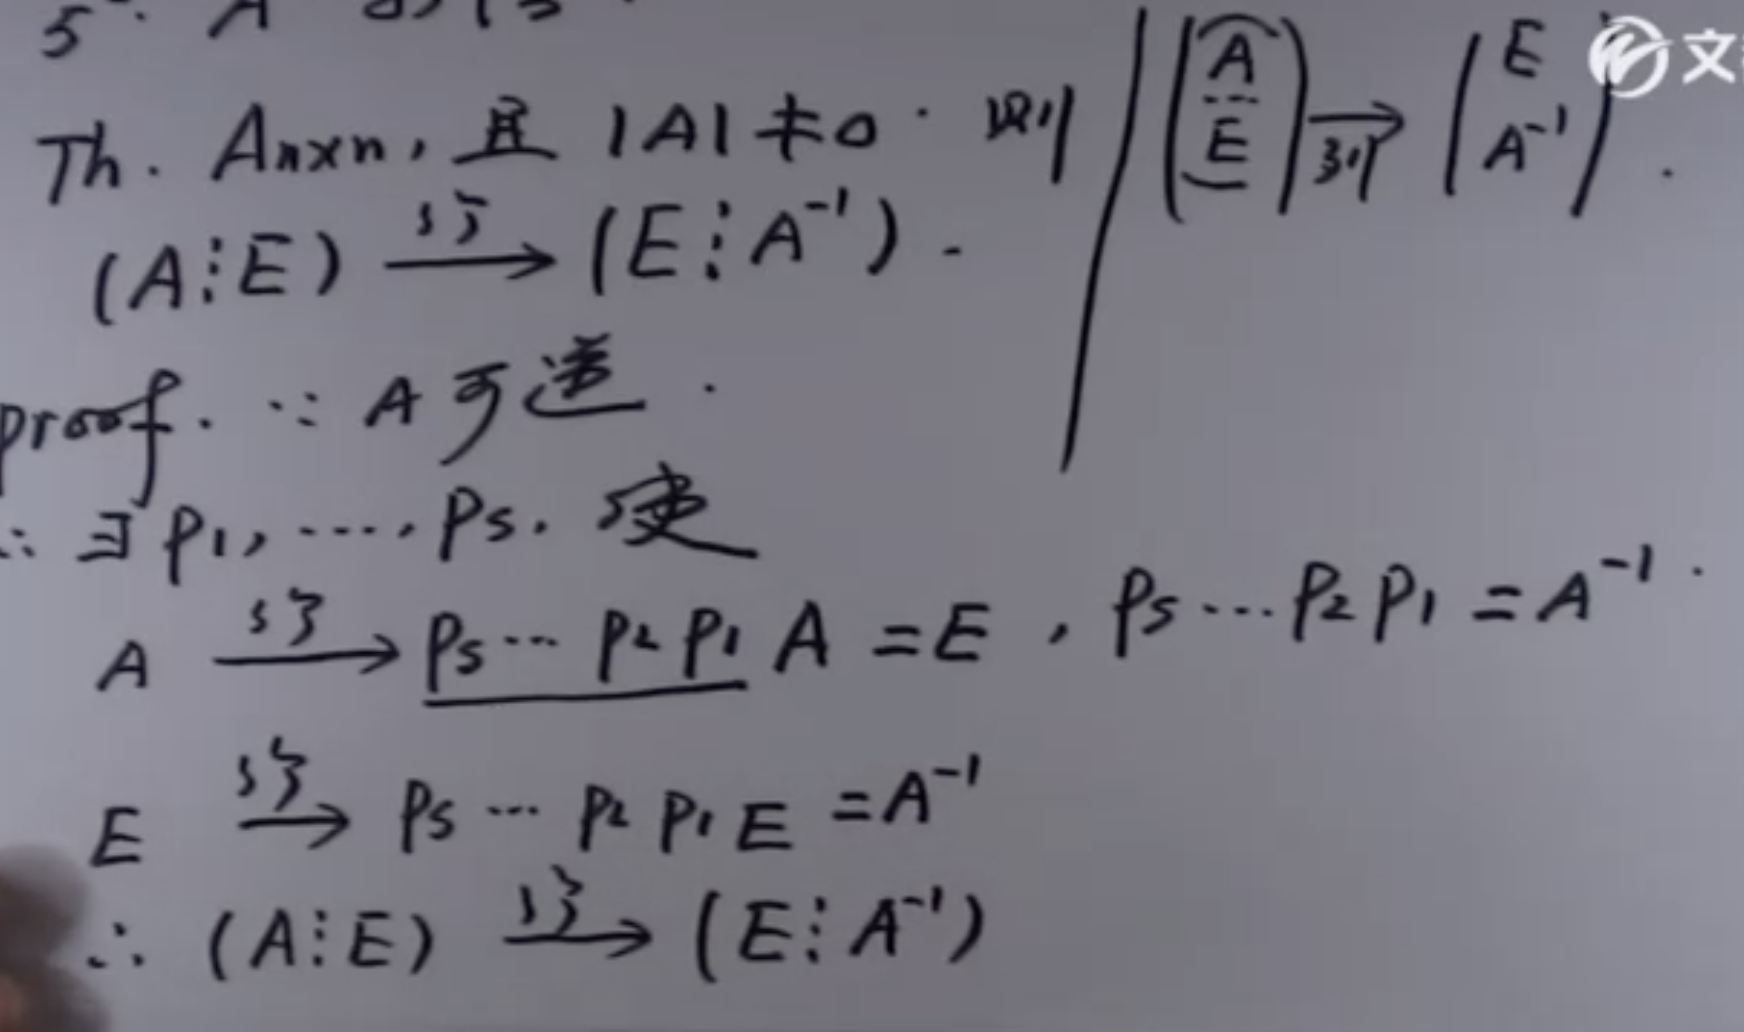 Th. Aₙₓₙ, 且 |A| ≠ 0. 则
(A⋮E) 行→ (E⋮A⁻¹).
proof. ∵ A 可逆.
∴ ∃ P₁, ⋯, Pₛ. 使
A 行→ Pₛ⋯P₂P₁A = E, Pₛ⋯P₂P₁ = A⁻¹.
E 行→ Pₛ⋯P₂P₁E = A⁻¹
∴ (A⋮E) 行→ (E⋮A⁻¹)
(A
E) 列→ (E
A⁻¹).
文